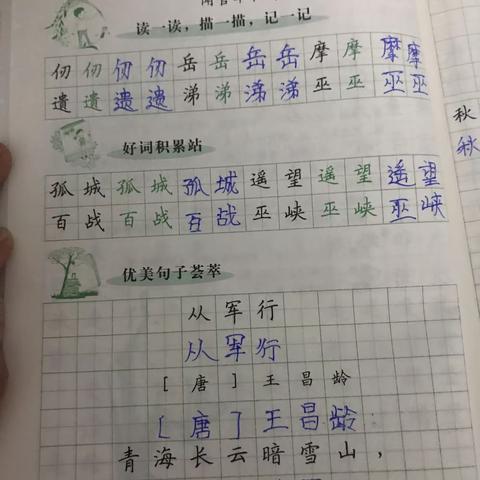 读一读，描一描，记一记
仞仞仞仞岳岳岳岳摩摩摩摩
遗遗遗遗涕涕涕涕巫巫巫巫
好词积累站
孤城孤城孤城遥望遥望遥望
百战百战百战巫峡巫峡巫峡
秋
秋
优美句子荟萃
从军行
从军行
[唐]王昌龄
[唐]王昌龄
青海长云暗雪山，